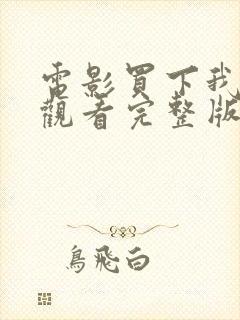 電影買下我
觀看完整版
鳥飛白